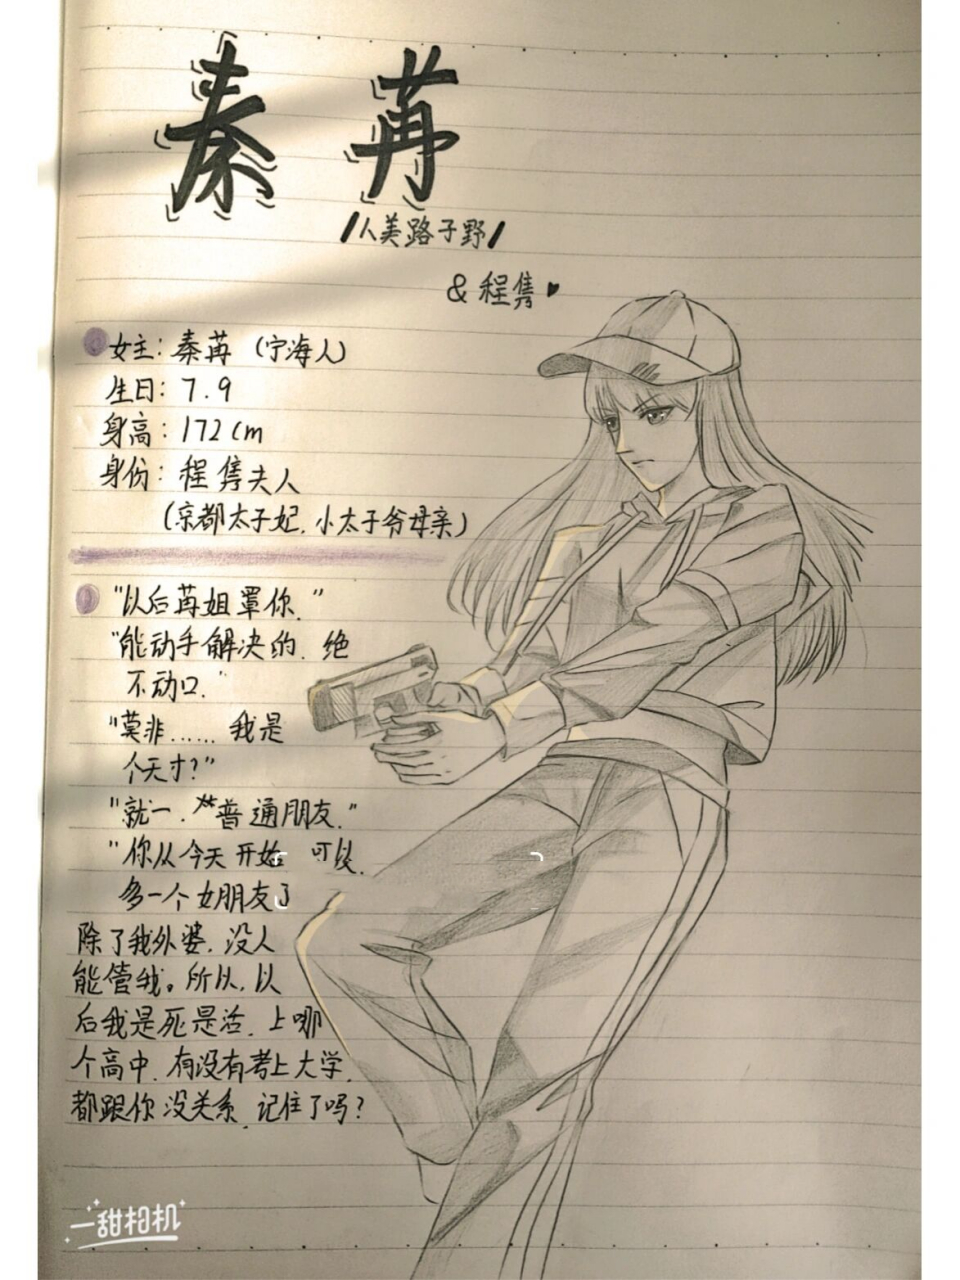 秦 苒
/人美路子野/
& 程隽♥
女主：秦苒（宁海人）
生日：7.9
身高：172cm
身份：程隽夫人
（京都太子妃.小太子爷母亲）
"以后苒姐罩你."
"能动手解决的.绝
不动口."
"莫非……我是
个天才?"
"就一.普通朋友."
"你从今天开始 可以
多一个女朋友了
除了我外婆.没人
能管我。所以.以
后我是死是活.上哪
个高中.有没有考上大学.
都跟你没关系.记住了吗?
一甜相机